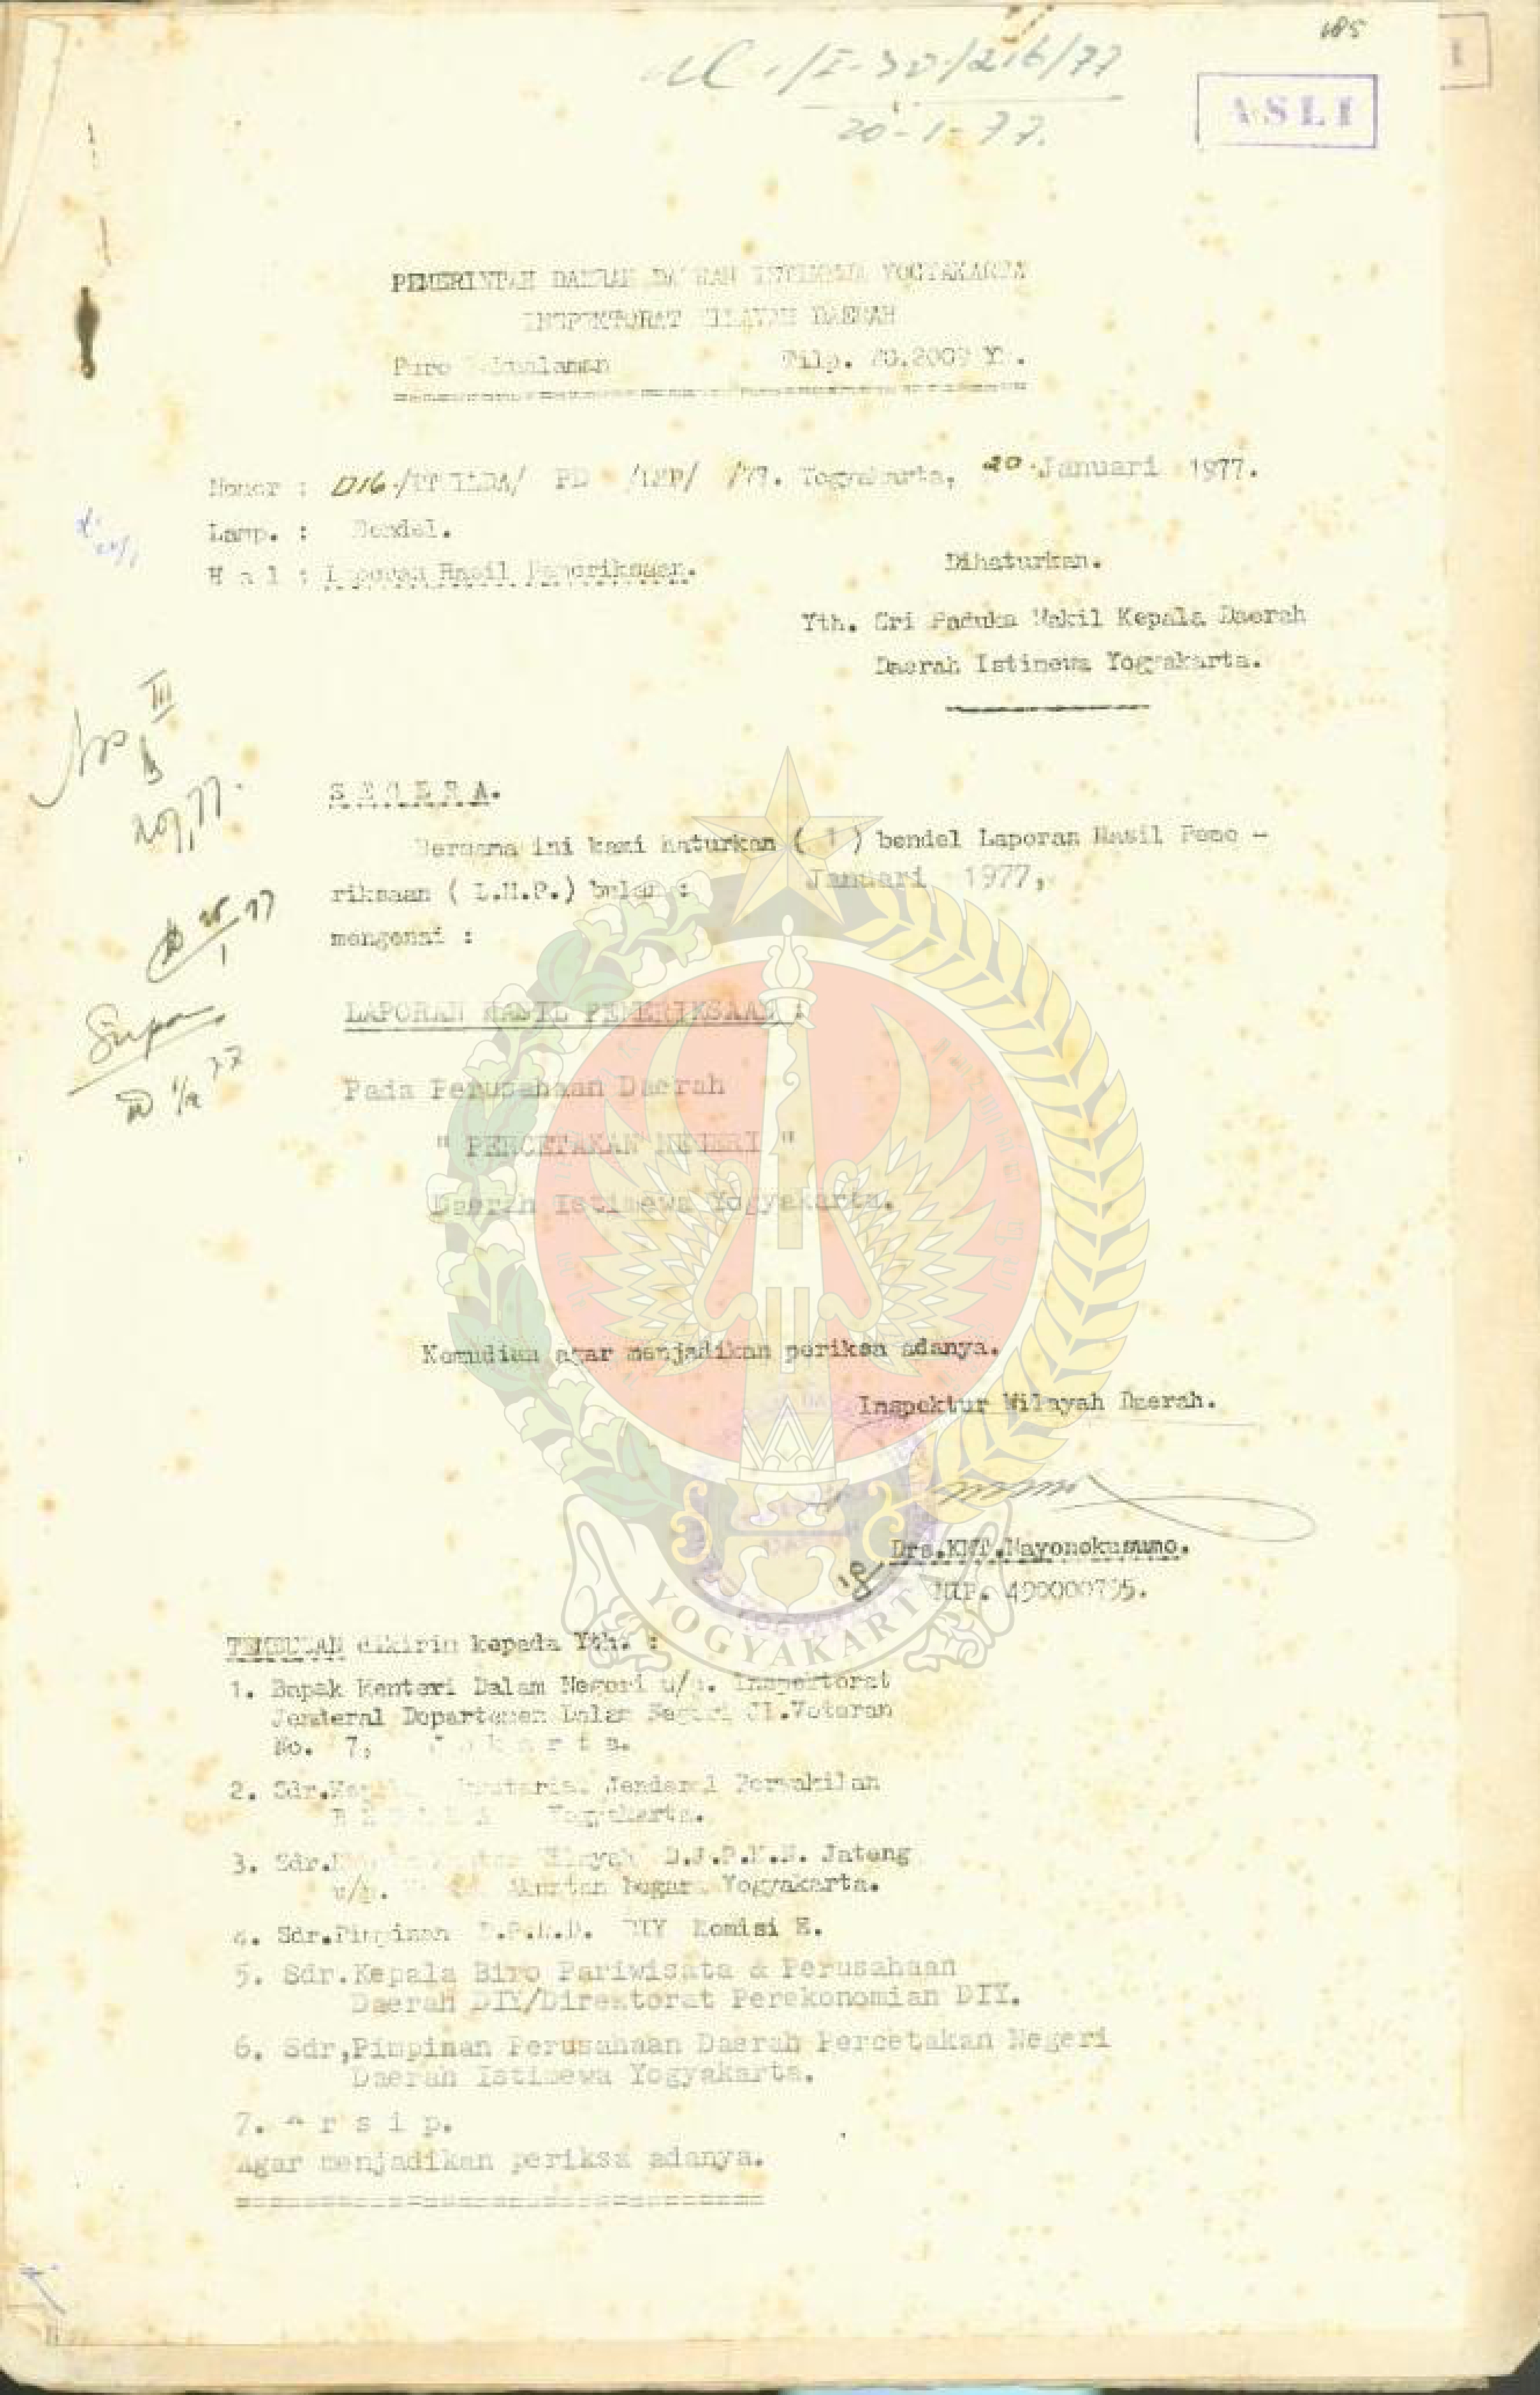 185
/I-30/216/77
20-1-77.
ASLI
PEMERINTAH DAERAH DAERAH ISTIMEWA YOGYAKARTA
INSPEKTORAT WILAYAH DAERAH
Puro Pakualaman Tilp. 20.2009 YK.
Nomor : 016/ITWILDA/ PD /LHP/ /77. Yogyakarta, 20 Januari 1977.
Lamp. : Bendel.
H a l : Laporan Hasil Pemeriksaan.
Dihaturkan.
Yth. Sri Paduka Wakil Kepala Daerah
Daerah Istimewa Yogyakarta.
III
S E G E R A.
Bersama ini kami haturkan ( 1 ) bendel Laporan Hasil Peme -
riksaan ( L.H.P.) bulan : Januari 1977,
mengenai :
LAPORAN HASIL PEMERIKSAAN :
Pada Perusahaan Daerah
" PERCETAKAN NEGERI "
Daerah Istimewa Yogyakarta.
Kemudian agar menjadikan periksa adanya.
Inspektur Wilayah Daerah.
Drs.KMT.Mayonokusumo.
NIP. 490000795.
YOGYAKARTA
TEMBUSAN dikirim kepada Yth. :
1. Bapak Menteri Dalam Negeri u/p. Inspektorat
Jenderal Departemen Dalam Negeri Jl.Veteran
No. 7, J a k a r t a.
2. Sdr. Jenderal Perwakilan
Yogyakarta.
3. Sdr. Wilayah D.J.P.K.N. Jateng
u/p. Akuntan Negara Yogyakarta.
4. Sdr.Pimpinan D.P.R.D. DIY Komisi E.
5. Sdr.Kepala Biro Pariwisata & Perusahaan
Daerah DIY/Direktorat Perekonomian DIY.
6. Sdr,Pimpinan Perusahaan Daerah Percetakan Negeri
Daerah Istimewa Yogyakarta.
7. A r s i p.
Agar menjadikan periksa adanya.